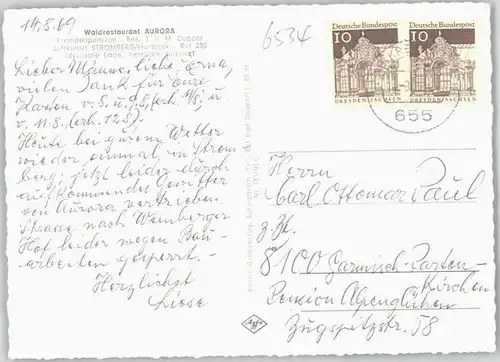 14.8.69
Waldrestaurant AURORA
Fremdenpension - Bes. J. H. M. Dupont
Luftkurort STROMBERG/Hunsrück - Ruf 250
Idyllische Lage, herrliche Fernsicht
Lieber Manne, liebe Erna,
vielen Dank für Eure
Karten v. 8. u. 9. (erh. 11.8.) u.
v. 11.8. (erh. 12.8.)
Heute bei gutem Wetter
wieder einmal in Strom
berg; jetzt leider durch
aufkommendes Gewitter
von Aurora vertrieben.
Strasse nach Weinberger
Hof leider wegen Bau-
arbeiten gesperrt.-
Herzlichst
Liese
6534
Deutsche Bundespost
10
DRESDEN/SACHSEN
Deutsche Bundespost
10
DRESDEN/SACHSEN
655
Herrn
Carl Ottomar Paul
z. Zt.
8100 Garmisch-Parten-
kirchen
Pension Alpenglühen
Zugspitzstr. 58
Agfa